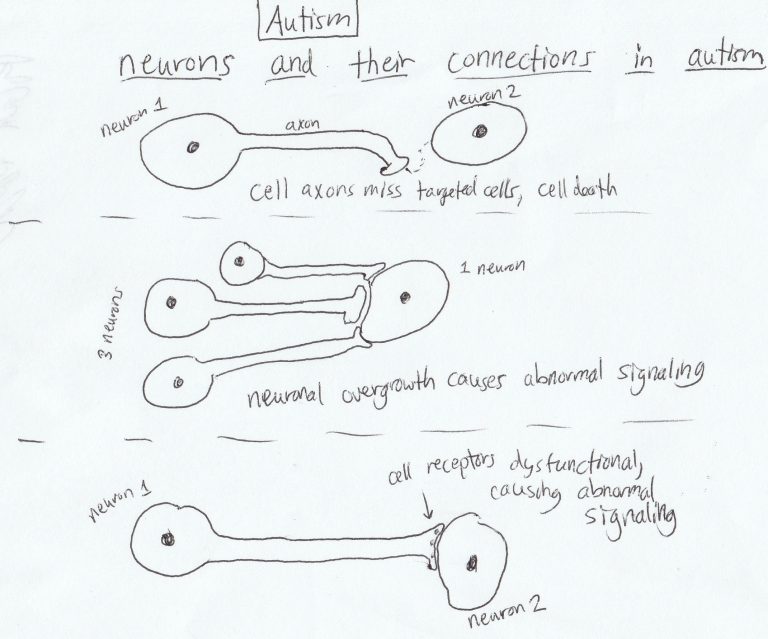 Autism
neurons and their connections in autism
neuron 1
axon
neuron 2
cell axons miss targeted cells, cell death
3 neurons
1 neuron
neuronal overgrowth causes abnormal signaling
cell receptors dysfunctional,
causing abnormal
signaling
neuron 1
neuron 2